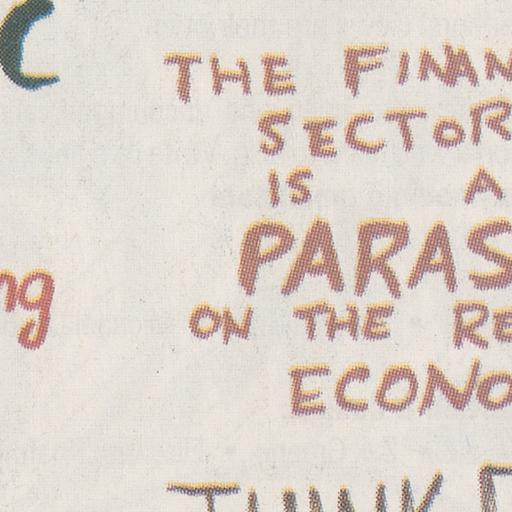 C
THE FINAN
SECTOR
IS A
PARAS
ng
ON THE RE
ECONO
THINK